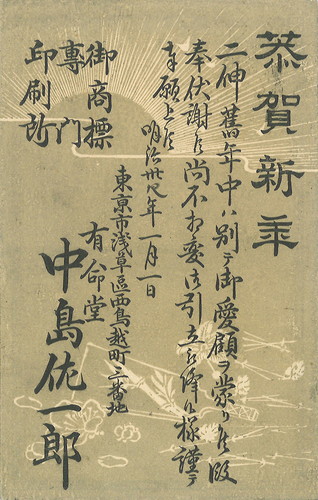 恭賀新年
二伸舊年中ハ別テ御愛顧ヲ蒙り候段
奉伏謝候尚不相変御引立被降候様謹テ
奉願上候
明治卅八年一月一日
東京市浅草區西鳥越町三番地
有命堂
中島佐一郎
御商標
専門
印刷所